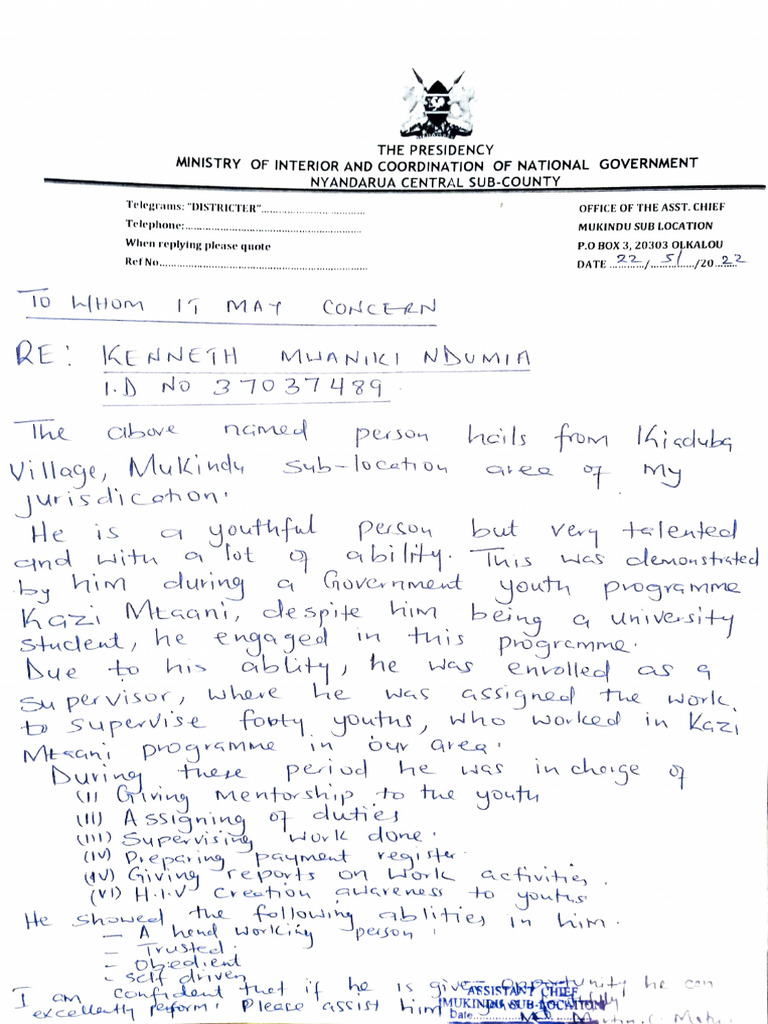 THE PRESIDENCY
MINISTRY OF INTERIOR AND COORDINATION OF NATIONAL GOVERNMENT
NYANDARUA CENTRAL SUB-COUNTY
Telegrams: "DISTRICTER"........................
Telephone:........................
When replying please quote
Ref No........................
OFFICE OF THE ASST. CHIEF
MUKINDU SUB LOCATION
P.O BOX 3, 20303 OLKALOU
DATE 22/5/2022
TO WHOM IT MAY CONCERN
RE: KENNETH MWANIKI NDUMIA
I.D NO 37037489.
The above named person hails from Kiaduba
Village, Mukindu sub-location area of my
jurisdication.
He is a youthful person but very talented
and with a lot of ability. This was demonstrated
by him during a Government youth programme
Kazi Mtaani, despite him being a university
student, he engaged in this programme.
Due to his ablity, he was enrolled as a
supervisor, where he was assigned the work
to supervise fouty youths, who worked in Kazi
Mtaani programme in our area.
During these period he was in charge of
(I) Giving Mentorship to the youth
(II) Assigning of duties
(III) Supervising work done.
(IV) Preparing payment register.
(IV) Giving reports on work activities.
(VI) H.I.V creation awareness to youths
He showed the following ablities in him.
- A hend working person.
- Trusted.
- Obedient
- Self driven
I am confident that if he is given opportunity he can
excellently perform. Please assist him
ASSISTANT CHIEF
MUKINDU SUB-LOCATION
Date